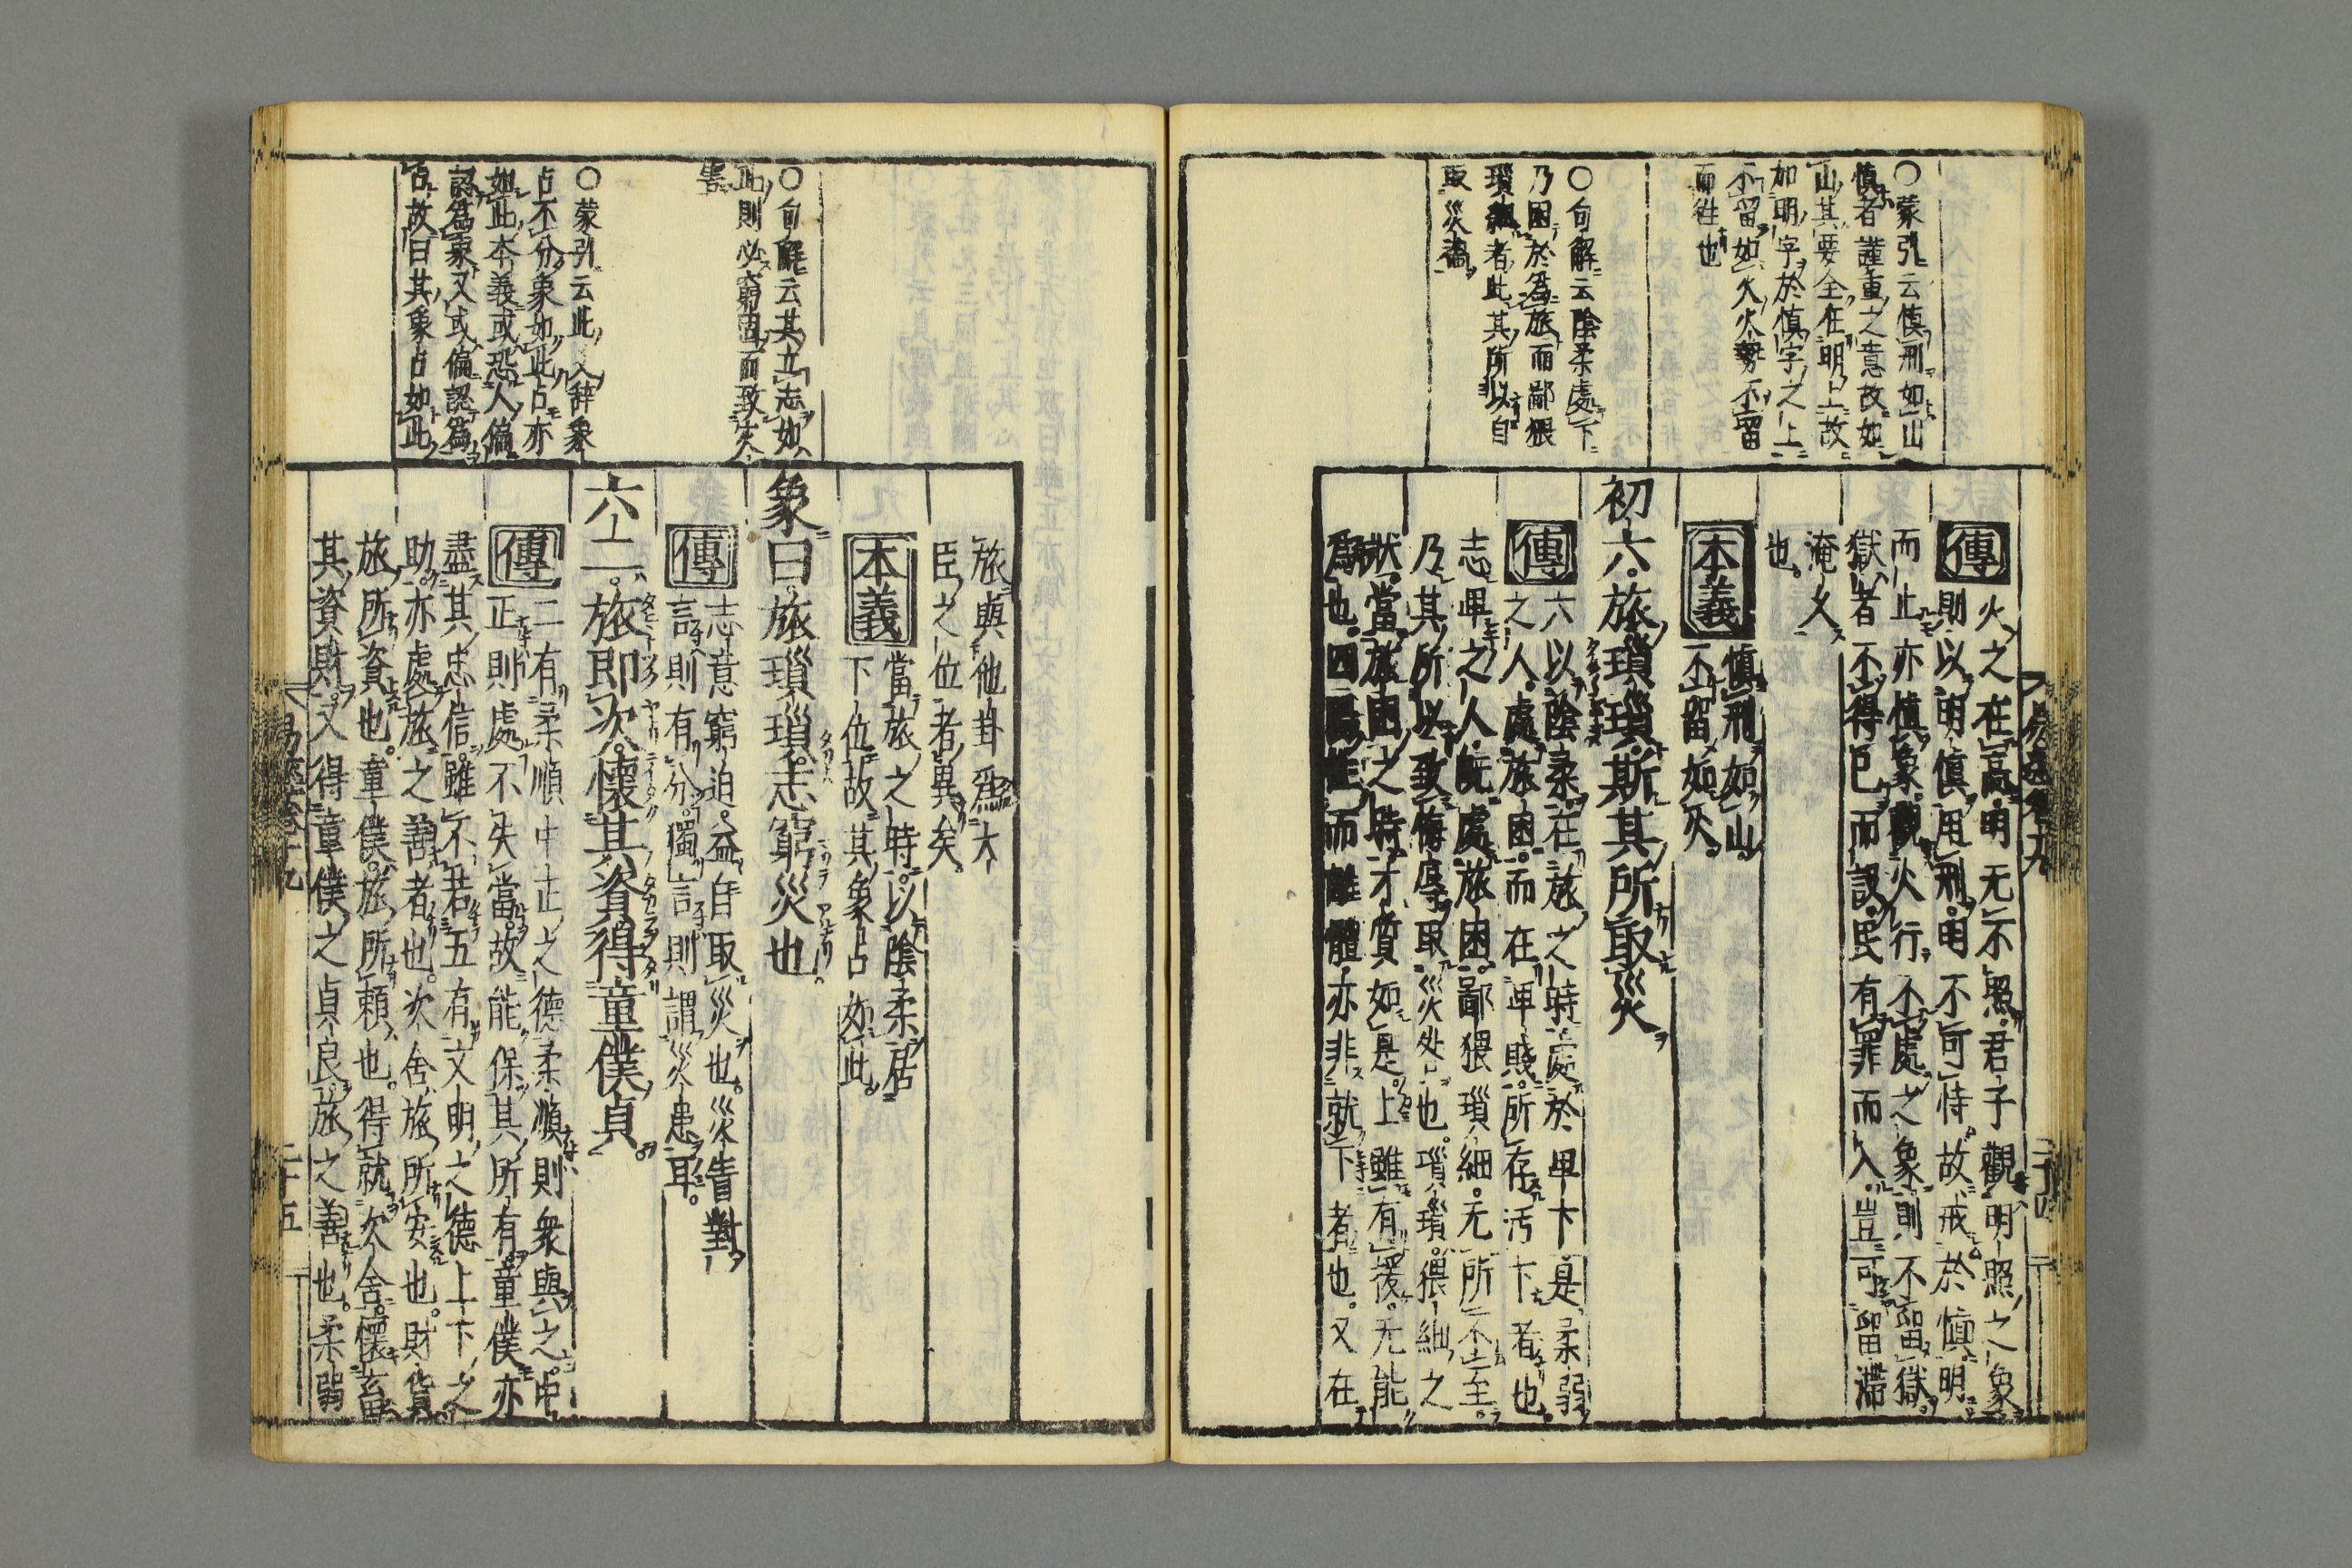 ○蒙引云慎刑如山
慎者謹重之意故如
山其要全在明上故
加明字於慎字之上
不留如火火勢不留
而徃也
○句解云陰柔處下
乃困於爲旅而鄙猥
瑣細者此其所以自
取災禍
傳
火之在高明无不照君子觀明照之象
則以明慎用刑明不可恃故戒於慎明
而止亦慎象觀火行不處之象則不留獄
獄者不得已而設民有罪而入豈可留滯
淹久
也
本義
慎刑如山
不留如火
初六旅瑣瑣斯其所取災
傳
六以陰柔在旅之時處於卑下是柔弱
之人處旅困而在卑賤所存汚下者也
志卑之人既處旅困鄙猥瑣細无所不至
乃其所以致悔辱取災咎也瑣瑣猥細之
狀當旅困之時才質如是上雖有援无能
爲也四陽性而離體亦非就下者也又在
易經卷十九
二十四
○句解云其立志如
此則必窮困而致災
害
○蒙引云此爻辞象
占不分象如此占亦
如此本義或恐人偏
認爲象又或偏認爲
占故曰其象占如此
旅與他卦爲大
臣之位者異矣
本義
當旅之時以陰柔居
下位故其象占如此
象曰旅瑣瑣志窮災也
傳
志意窮迫益自取災也災眚對
言則有分獨言則謂災患耳
六二旅即次懷其資得童僕貞
傳
二有柔順中正之德柔順則衆與之中
正則處不失當故能保其所有童僕亦
盡其忠信雖不若五有文明之德上下之
助亦處旅之善者也次舍旅所安也財貨
旅所資也童僕旅所頼也得就次舍懷畜
其資財又得童僕之貞良旅之善也柔弱
易經卷十九
二十五